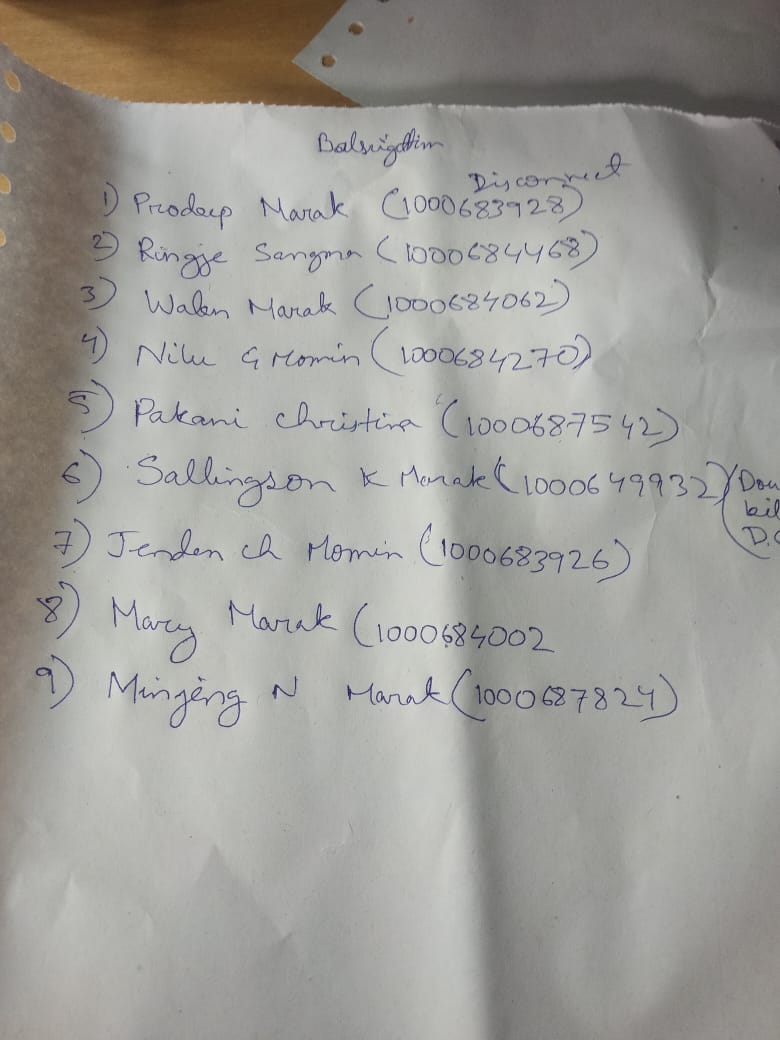 Balsrigittim
Disconnect
1) Prodeep Marak (1000683928)
2) Ringje Sangma (1000684468)
3) Walen Marak (1000684062)
4) Nilu G Momin (1000684270)
5) Pakani Christina (1000687542)
6) Sallingson K Marak (1000649932) (Dou
bil
D.C
7) Jenden ch Momin (1000683926)
8) Mary Marak (1000684002
9) Mingéng N Marak (1000687824)